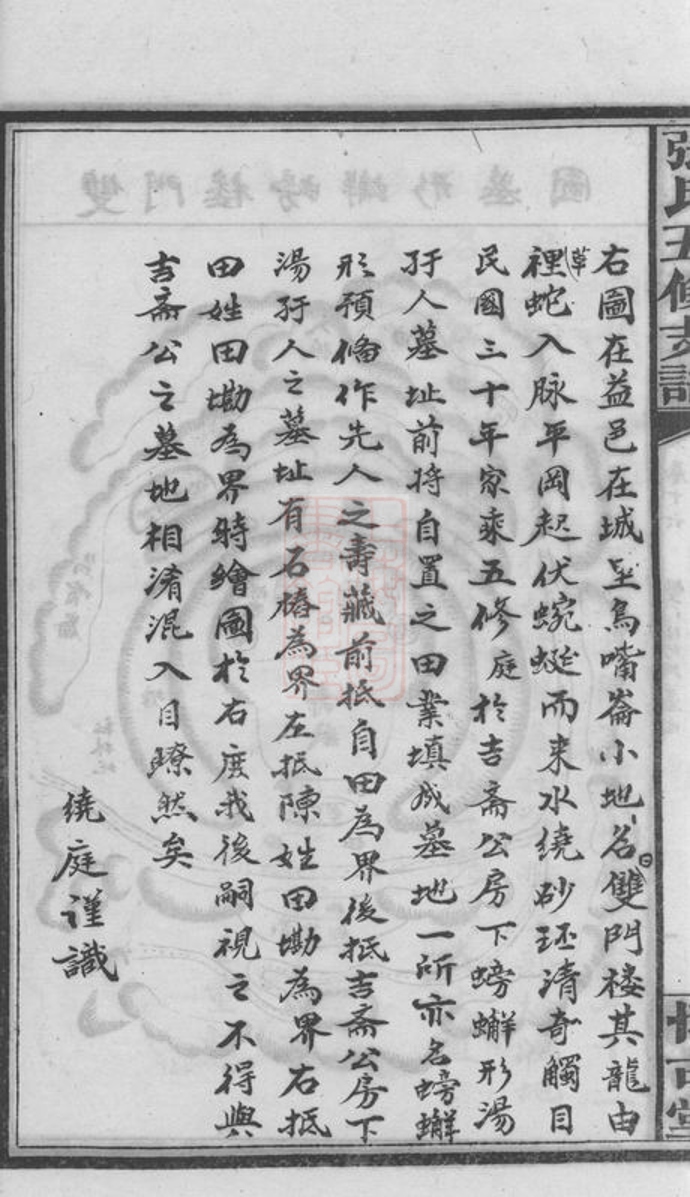 張氏五修支譜
右圖在益邑在城坒鳥嘴崙小地名曰雙門楼其龍由
草裡蛇入脉平岡起伏蜿蜒而来水繞砂環清奇觸目
民國三十年家乘五修庭於吉斋公房下螃蠏形湯
孺人墓址前将自置之田業填成墓地一所亦名螃蠏
形預備作先人之壽藏前抵自田為界後抵吉斋公房下
湯孺人之墓址有石樁為界左抵陳姓田墈為界右抵
田姓田墈為界時繪圖於右庶我後嗣視之不得與
吉斋公之墓地相淆混入目瞭然矣
繞庭谨識